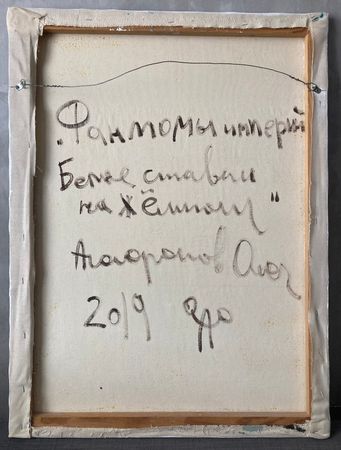 „Фантомы империй
Белые ставни
на тёмном"
Агафонов Олег
2019